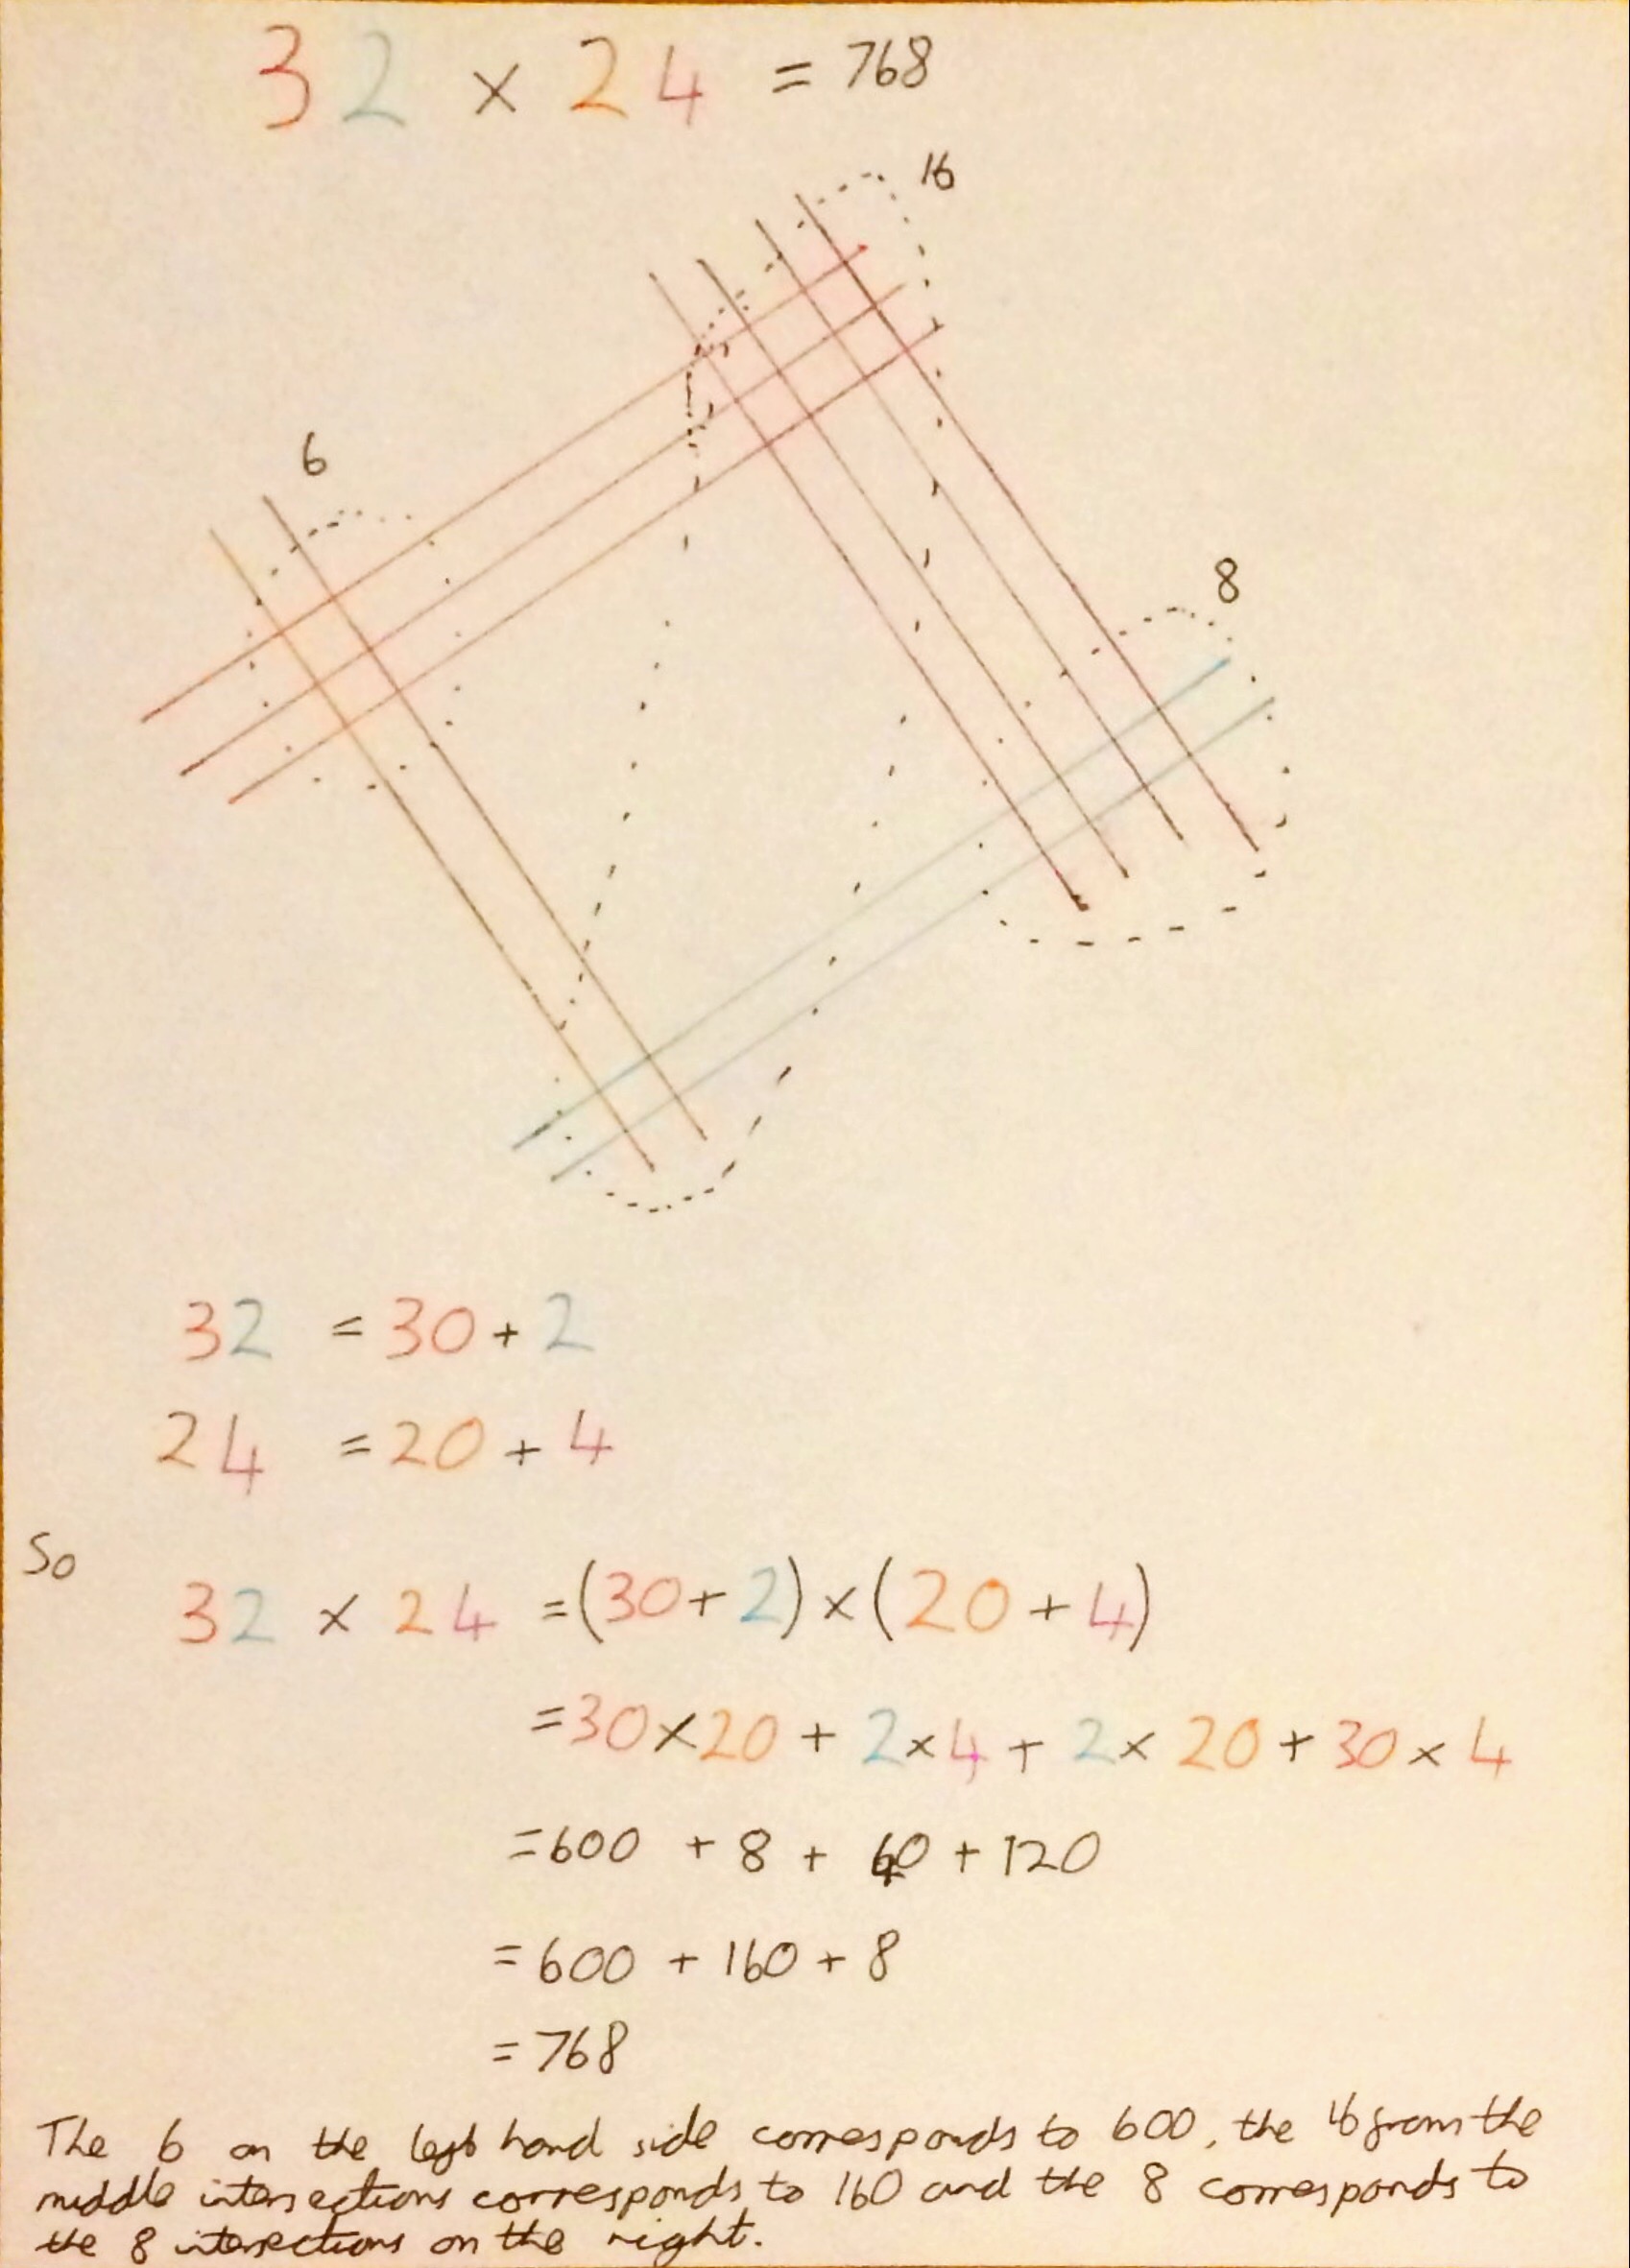 32 × 24 = 768
16
6
8
32 = 30 + 2
24 = 20 + 4
So
32 × 24 = (30 + 2) × (20 + 4)
= 30 × 20 + 2 × 4 + 2 × 20 + 30 × 4
= 600 + 8 + 40 + 120
= 600 + 160 + 8
= 768
The 6 on the left hand side corresponds to 600, the 16 from the
middle intersections corresponds to 160 and the 8 corresponds to
the 8 intersections on the right.